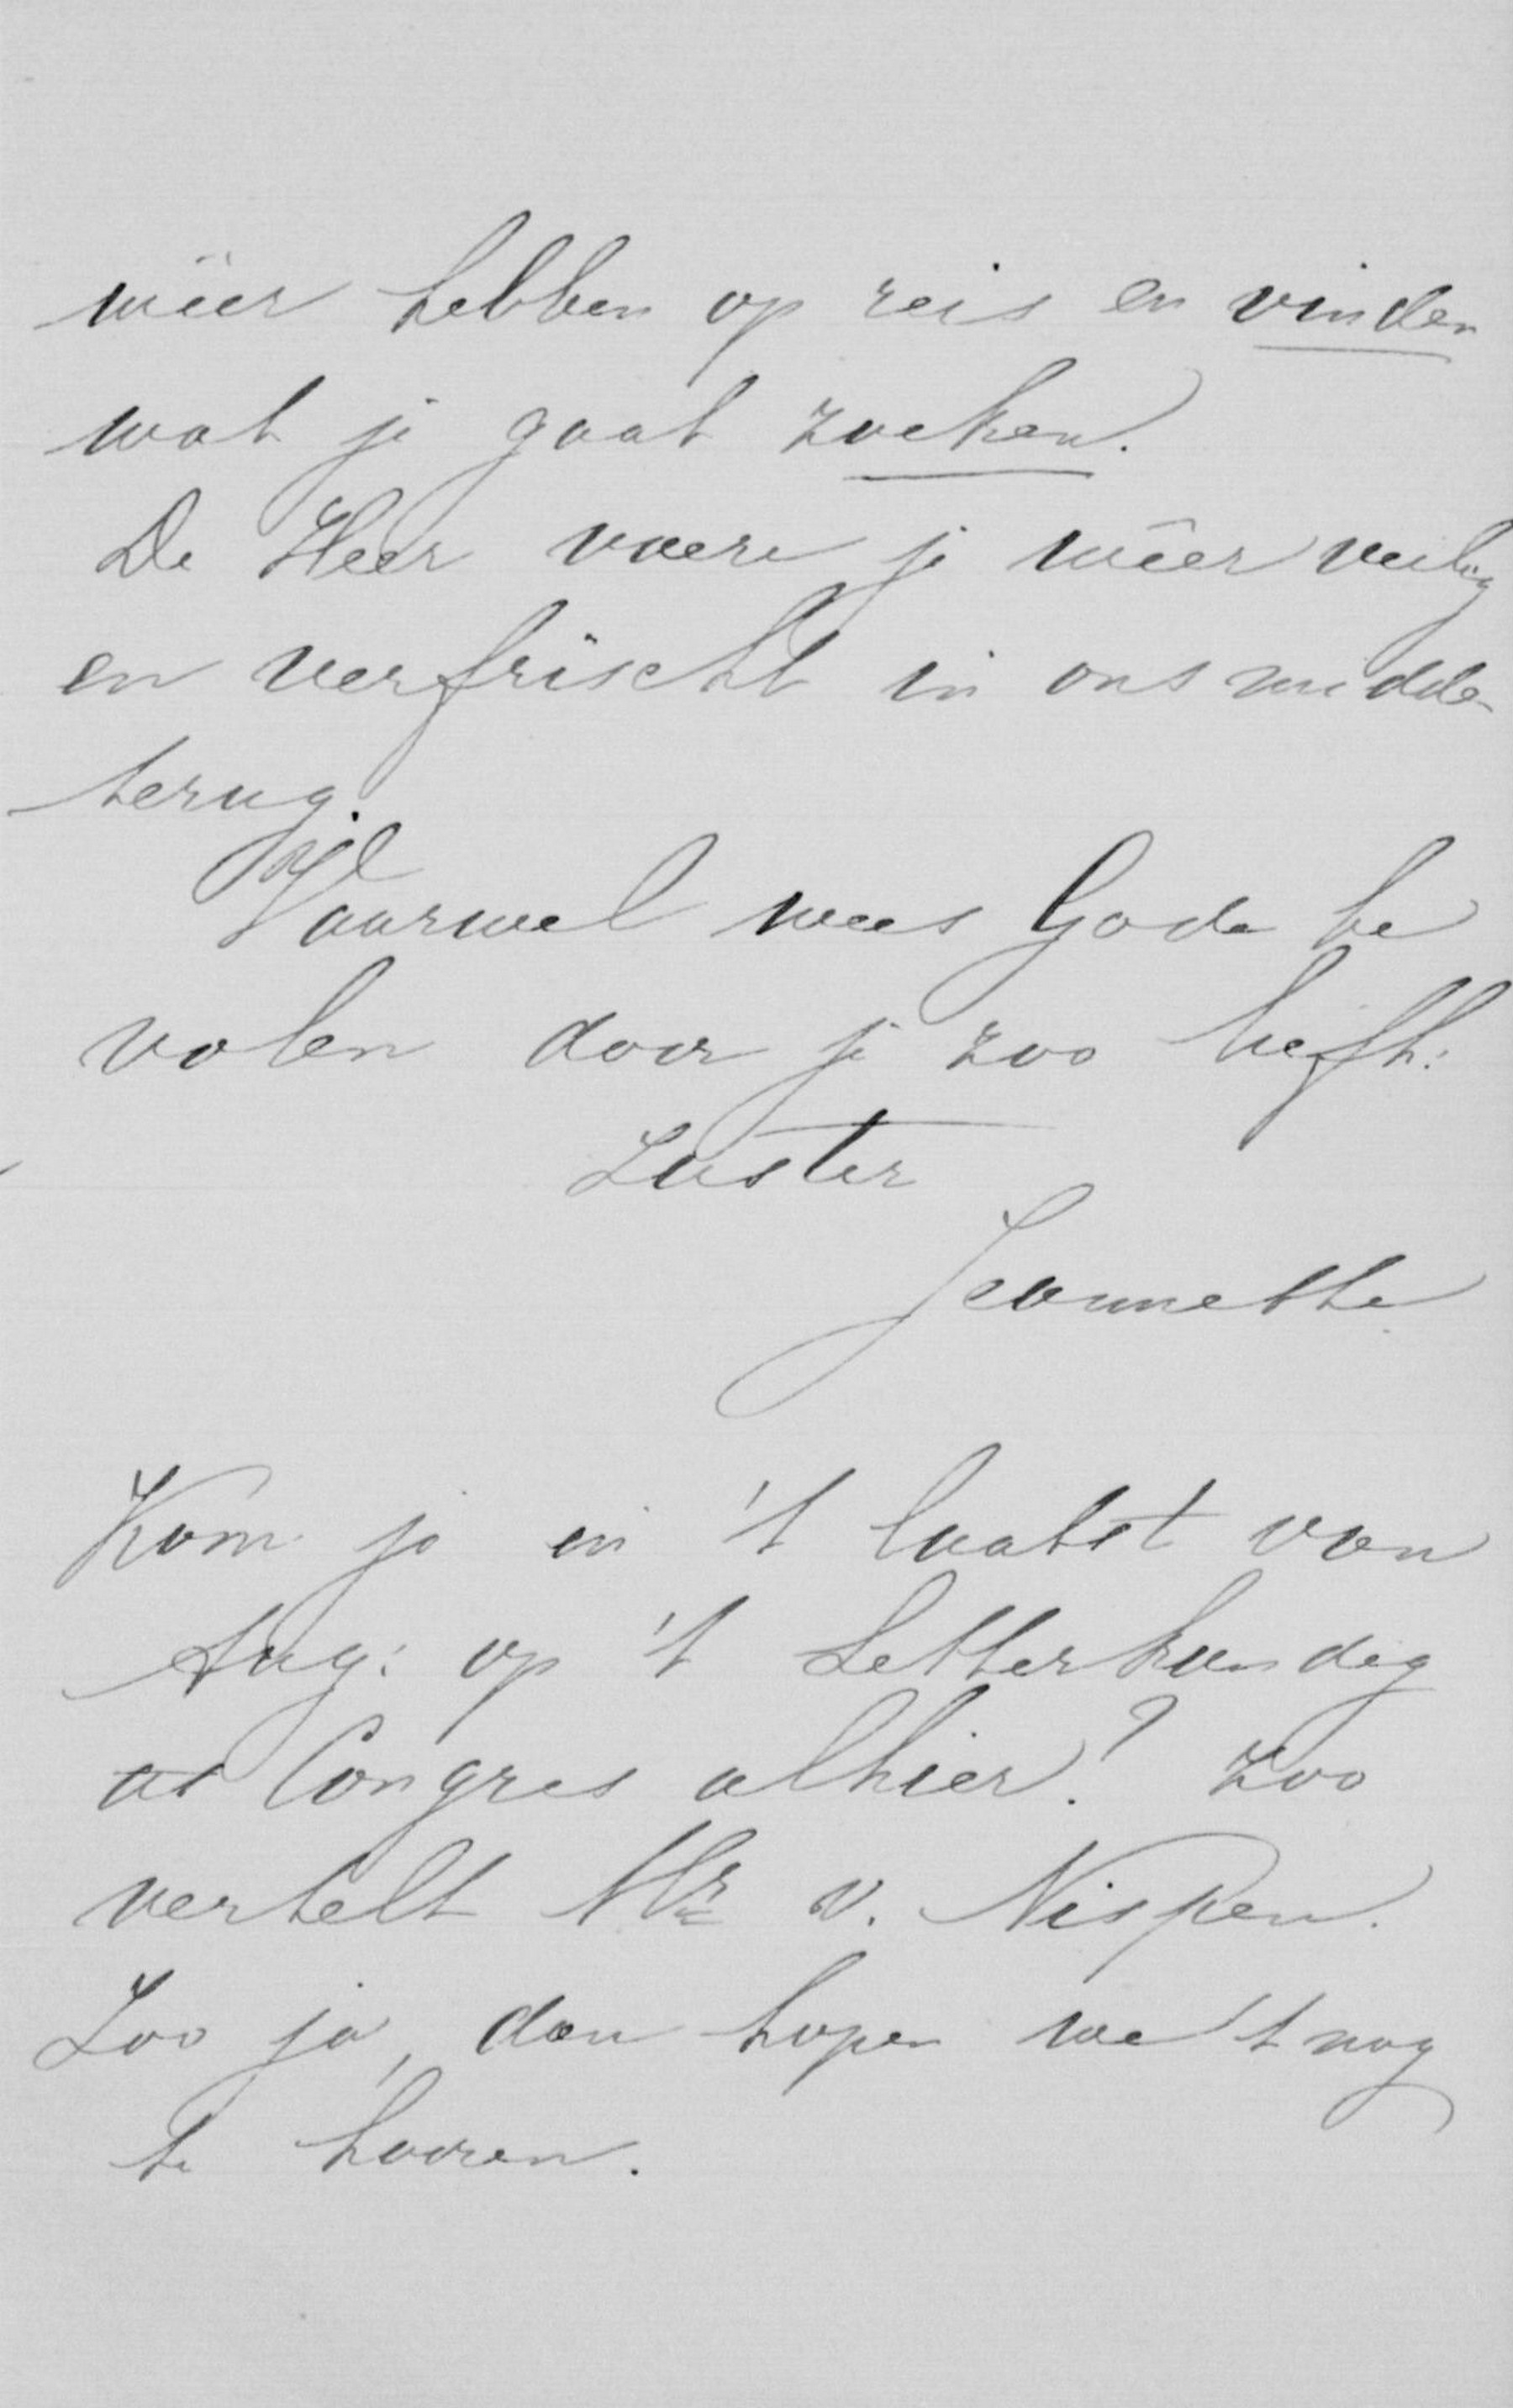 wêer hebben op reis en vinden
wat je gaat zoeken.
De Heer voere je wêer veilig
en verfrischt in ons midden
terug.
Vaarwel wees Gode be
volen door je zoo liefh:
Zuster
Jeannette
Kom je in 't laatst van
Aug: op 't Letterkundig
Congres alhier? Zoo
vertelt Mr v. Nispen.
Zoo ja, dan hopen we 't nog
te hooren.